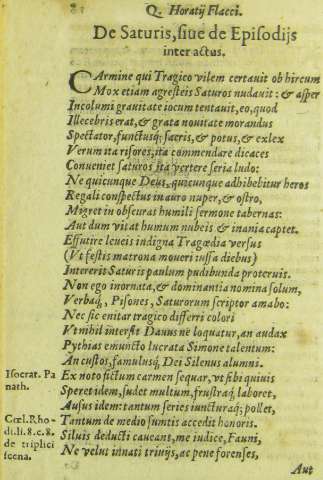 Q. Horatij Flacci.
De Saturis, siue de Episodijs
inter actus.
CArmine qui Tragico vilem certauit ob hircum
Mox etiam agresteis Saturos nudauit: & asper
Incolumi grauitate iocum tentauit, eo, quod
Illecebris erat, & grata nouitate morandus
Spectator, functusq; sacris, & potus, & exlex
Verum ita risores, ita commendare dicaces
Conueniet saturos ita vertere seria ludo:
Ne quicunque Deus, quicunque adhibebitur heros
Regali conspectus in auro nuper, & ostro,
Migret in obscuras humili sermone tabernas:
Aut dum vitat humum nubeis & inania captet.
Effutire leueis indigna Tragœdia versus
(Vt festis matrona moueri iussa diebus)
Intererit Saturis paulum pudibunda proteruis.
Non ego inornata, & dominantia nomina solum,
Verbaq́, Pisones, Saturorum scriptor amabo:
Nec sic enitar tragico differri colori
Vt nihil intersit Dauus ne loquatur, an audax
Pythias emuncto lucrata Simone talentum:
An custos, famulusq́, Dei Silenus alumni.
Isocrat. Pa
nath.
Ex noto fictum carmen sequar, vt sibi quiuis
Speret idem, sudet multum, frustraq́, laboret,
Ausus idem: tantum series iuncturaq́; pollet,
Cœl. Rho-
di. li. 8. c. 8.
de triplici
scena.
Tantum de medio sumtis accedit honoris.
Siluis deducti caueant, me iudice, Fauni,
Ne velut innati triuijs, ac pene forenses,
Aut